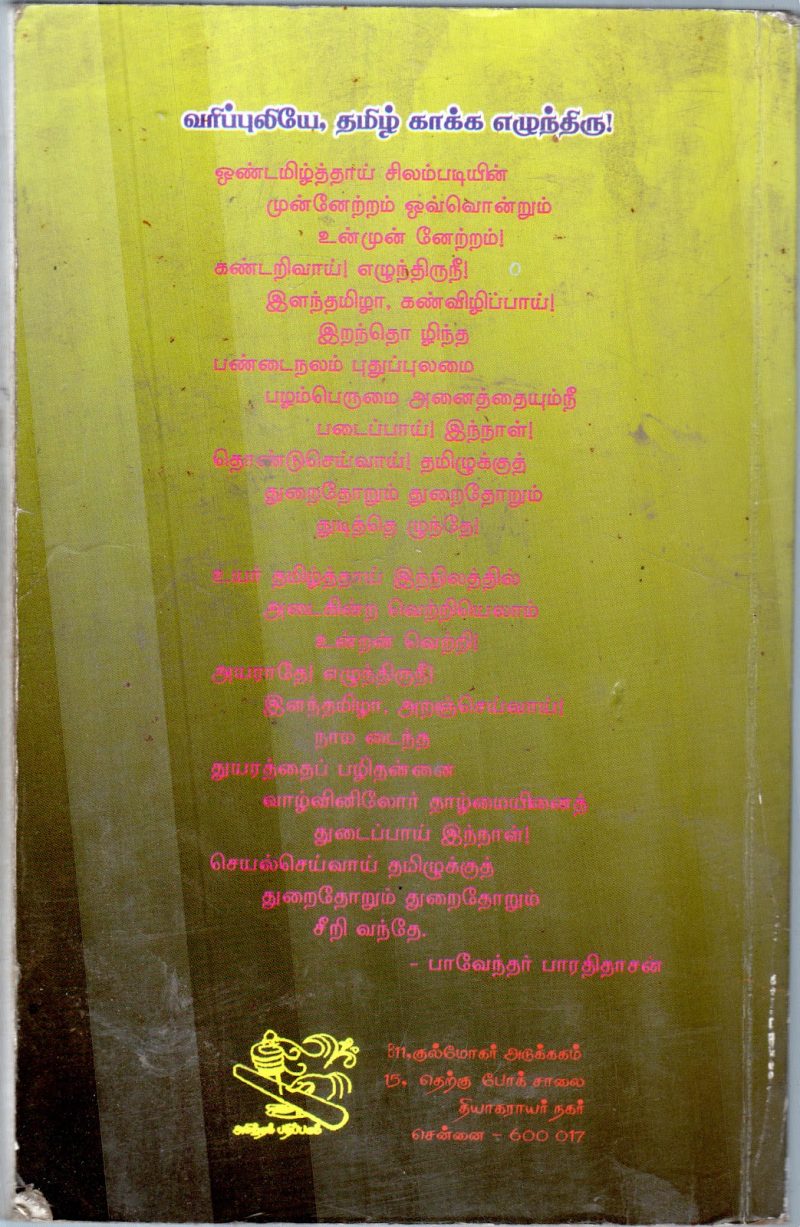 வரிப்புலியே, தமிழ் காக்க எழுந்திரு!
ஒண்டமிழ்த்தாய் சிலம்படியின்
முன்னேற்றம் ஒவ்வொன்றும்
உன்முன் னேற்றம்!
கண்டறிவாய்! எழுந்திருநீ!
இளந்தமிழா, கண்விழிப்பாய்!
இறந்தொ ழிந்த
பண்டைநலம் புதுப்புலமை
பழம்பெருமை அனைத்தையும்நீ
படைப்பாய்! இந்நாள்!
தொண்டுசெய்வாய்! தமிழுக்குத்
துறைதோறும் துறைதோறும்
துடித்தெ ழுந்தே!
உயர் தமிழ்த்தாய் இந்நிலத்தில்
அடைகின்ற வெற்றியெலாம்
உன்றன் வெற்றி!
அயராதே! எழுந்திருநீ!
இளந்தமிழா, அறஞ்செய்வாய்!
நாம டைந்த
துயரத்தைப் பழிதன்னை
வாழ்வினிலோர் தாழ்மையினைத்
துடைப்பாய் இந்நாள்!
செயல்செய்வாய் தமிழுக்குத்
துறைதோறும் துறைதோறும்
சீறி வந்தே.
- பாவேந்தர் பாரதிதாசன்
B11,குல்மோகர் அடுக்ககம்
15, தெற்கு போக் சாலை
தியாகராயர் நகர்
சென்னை - 600 017
பதிப்பகம்